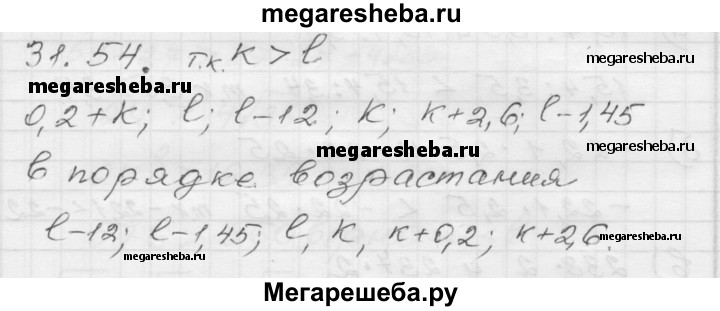 megaresheba.ru
31.54. т.к. k > l
megaresheba.ru
megaresheba.ru
0,2+k; l; l-12; k; k+2,6; l-1,45
megaresheba.ru
megaresheba.ru
в порядке возрастания
l-12; l-1,45; l, k, k+0,2; k+2,6.
megaresheba.ru
megaresheba.ru
Мегарешеба.ру